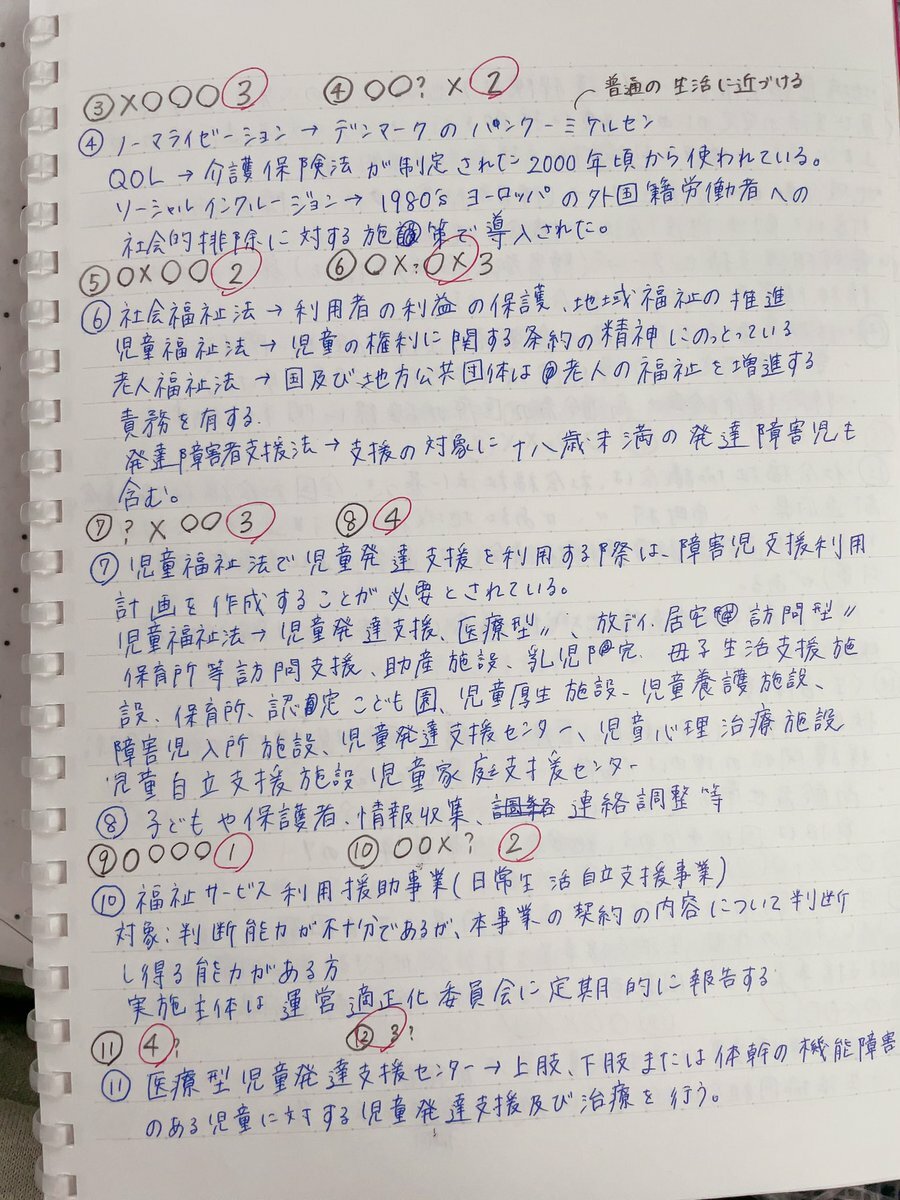 ③×○○○③ ④○○?×②
普通の生活に近づける
④ノーマライゼーション→デンマークのバンクーミケルセン
QOL→介護保険法が制定された2000年頃から使われている。
ソーシャルインクルージョン→1980's ヨーロッパの外国籍労働者への
社会的排除に対する施策で導入された。
⑤○×○○② ⑥○×?○×3
⑥社会福祉法→利用者の利益の保護、地域福祉の推進
児童福祉法→児童の権利に関する条約の精神にのっとっている
老人福祉法→国及び地方公共団体は老人の福祉を増進する
責務を有する.
発達障害者支援法→支援の対象に十八歳未満の発達障害児も
含む。
⑦?×○○③ ⑧④
⑦児童福祉法で児童発達支援を利用する際は、障害児支援利用
計画を作成することが必要とされている。
児童福祉法→児童発達支援、医療型〃、放デイ、居宅訪問型〃
保育所等訪問支援、助産施設、乳児院、母子生活支援施
設、保育所、認定こども園、児童厚生施設、児童養護施設、
障害児入所施設、児童発達支援センター、児童心理治療施設
児童自立支援施設 児童家庭支援センター
⑧子どもや保護者、情報収集、連絡調整等
⑨○○○○① ⑩○○×?②
⑩福祉サービス利用援助事業(日常生活自立支援事業)
対象:判断能力が不十分であるが、本事業の契約の内容について判断
し得る能力がある方
実施主体は運営適正化委員会に定期的に報告する
⑪④? ⑫3?
⑪医療型児童発達支援センター→上肢、下肢または体幹の機能障害
のある児童に対する児童発達支援及び治療を行う。